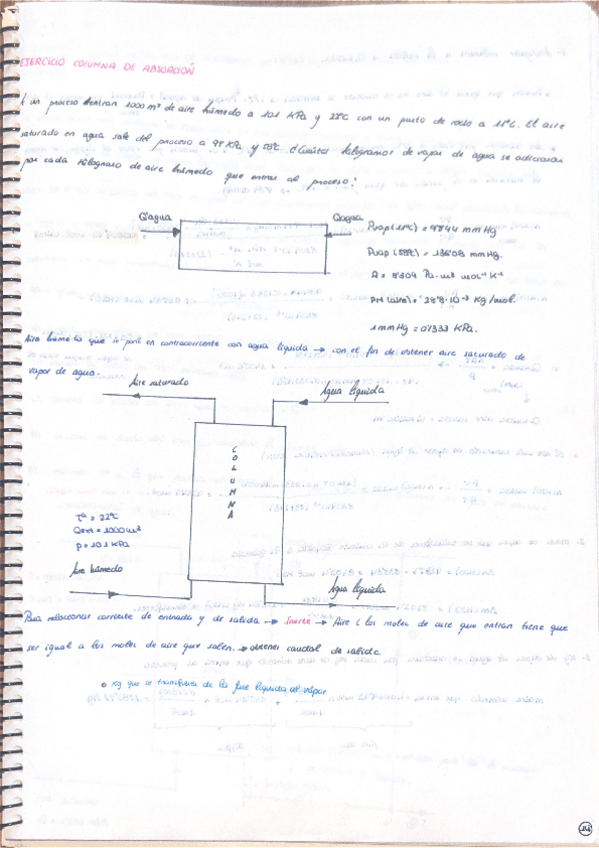 EJERCICIO COLUMNA DE ABSORCIÓN
A un proceso entran 1000 m³ de aire húmedo a 101 KPa y 22ºC con un punto de rocío a 11ºC. El aire
saturado en agua sale del proceso a 98 KPa y 58ºC ¿Cuántos kilogramos de vapor de agua se adicionan
por cada kilogramo de aire húmedo que entra al proceso?
Q'agua
Qagua
Pvap (11ºC) = 9'844 mmHg
Pvap (58ºC) = 136'08 mmHg.
R = 8'309 Pa·m³ mol⁻¹ K⁻¹
PM (aire) = 28'8·10⁻³ Kg/mol.
1 mmHg = 0'1333 KPa.
Aire húmedo que se pone en contracorriente con agua líquida → con el fin de obtener aire saturado de
vapor de agua.
Aire saturado
Agua líquida
COLUMNA
Tª = 22ºC
Qent = 1000 m³
p = 101 KPa
Aire húmedo
Agua líquida
Para relacionar corriente de entrada y de salida → Inerte → Aire (los moles de aire que entran tiene que
ser igual a los moles de aire que salen. → obtener caudal de salida.
Kg que se transfiere de la fase líquida al vapor